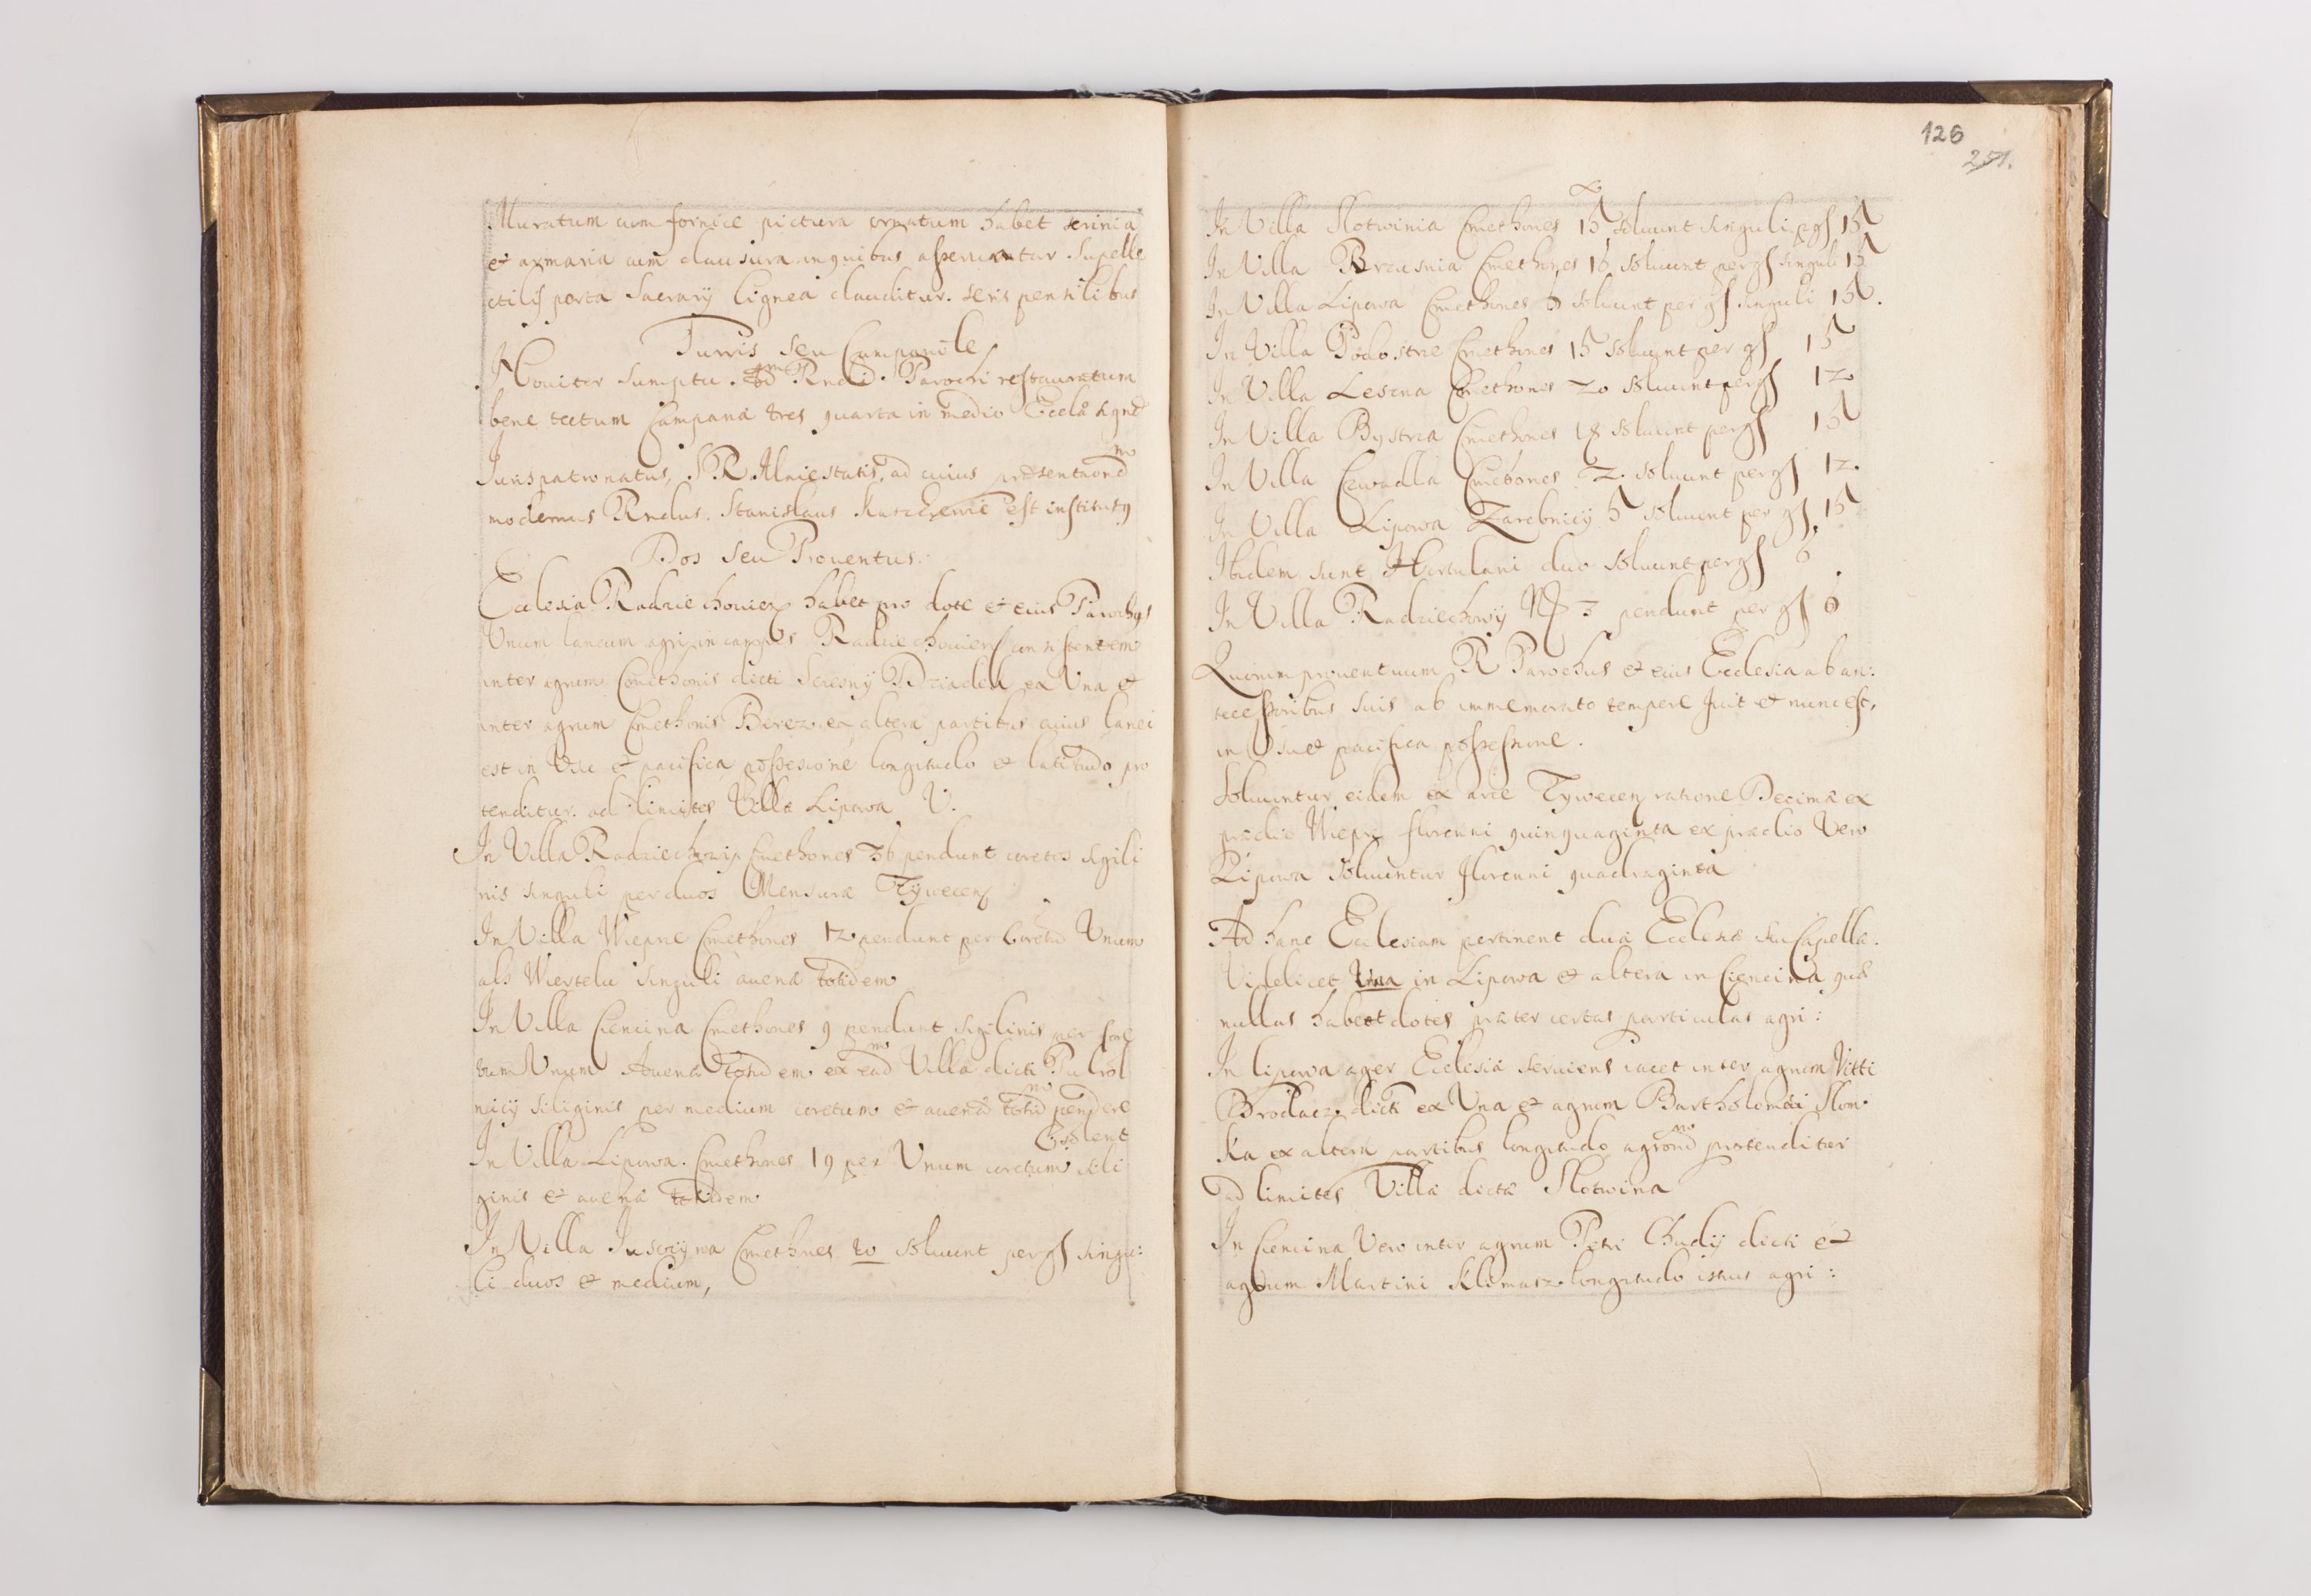 Muratum cum fornice pictura ornatum habet scrinia
et armaria cum clausura in quibus asseruantur Supelle
ctilis porta Sacrarij lignea clauditur. seris pensilibus
Turris seu Campanile
Nouiter sumptu Rndi Parochi restauratum
bene tectum Campana tres quarta in medio Eccla
Jurispatronatus, S R Maiestatis, ad cuius
modernus Rndus. Stanislaus est institutg
Dos seu Prouentus.
Ecclesia Radziechouien habet pro dote et eius Parochg
Vnum laneum agri in campis Radziechouien consistentem
inter agrum Cmethonis dicti Dziadek ex Vna et
inter agrum Cmethonis Berez. ex altera partibus cuius lanei
est in Vsu et pacifica possesione longitudo et latitudo pro
tenditur. ad limites Villa Lipowa V.
In Villa Cmethones 36 pendunt coretos sigili
nis singuli per duos Mensura Zywecen
In Villa Wieprze Cmethones 12 pendunt per Coretu Vnum
als Wiertelu singuli auena totidem
In Villa Ciencina Cmethones 9 pendunt sigilinis per Core
tum Vnum Auena totidem ex ead Villa dicti
nicij siliginis per medium coretum et auena totid pendere
solent
In Villa Lipowa. Cmethones 19 per Vnum coretum sili
ginis et auena totidem
In Villa Juszczyna Cmethones 20 soluunt per gs singu:
li duos et medium,
126
251.
In Villa Slotwinia Cmethones 15 soluunt singuli p gs 15
In Villa Brzusnia Cmethones 16 soluunt per gs singuli 15
In Villa Lipowa Cmethones 5 soluunt per gs singuli 15.
In Villa Podostrie Cmethones 15 soluunt per gs 15
In Villa Lesna Cmethones 20 soluunt per gs 12
In Villa Bystra Cmethones 18 soluunt per gs 15
In Villa Cmethones 2. soluunt per gs 12.
In Villa Lipowa Zarebnicij 5 soluunt per gs. 15
Ibidem sunt Hortulani duo soluunt per gs 6
In Villa Radziechowij 3 pendunt per gs 6
Quorum prouentuum R Parochus et eius Ecclesia ab an:
tecessoribus suis ab immemorato tempore fuit et nunc est,
in Vsu et pacifica possessione.
Soluuntur eidem ex arce Zywecen ratione Decima ex
prædio Wieprz florenni quinquaginta ex prædio Vero
Lipowa soluuntur florenni quadraginta
Ad hanc Ecclesiam pertinent dua Ecclesia seu Capella.
Videlicet Vna in Lipowa et altera in Ciencina qua
nullas habent dotes præter certas particulas agri:
In lipowa ager Ecclesia seruiens iacet inter agrum Vitti
Brodacz. dicti ex Vna et agrum Bartholomæi Slom.
ka ex altera partibus longitudo agrorum protenditur
ad limites Villa dicta Slotwina
In Ciencina Vero inter agrum Petri Chudij dicti et
agrum Martini Klimasz. longitudo istius agri: